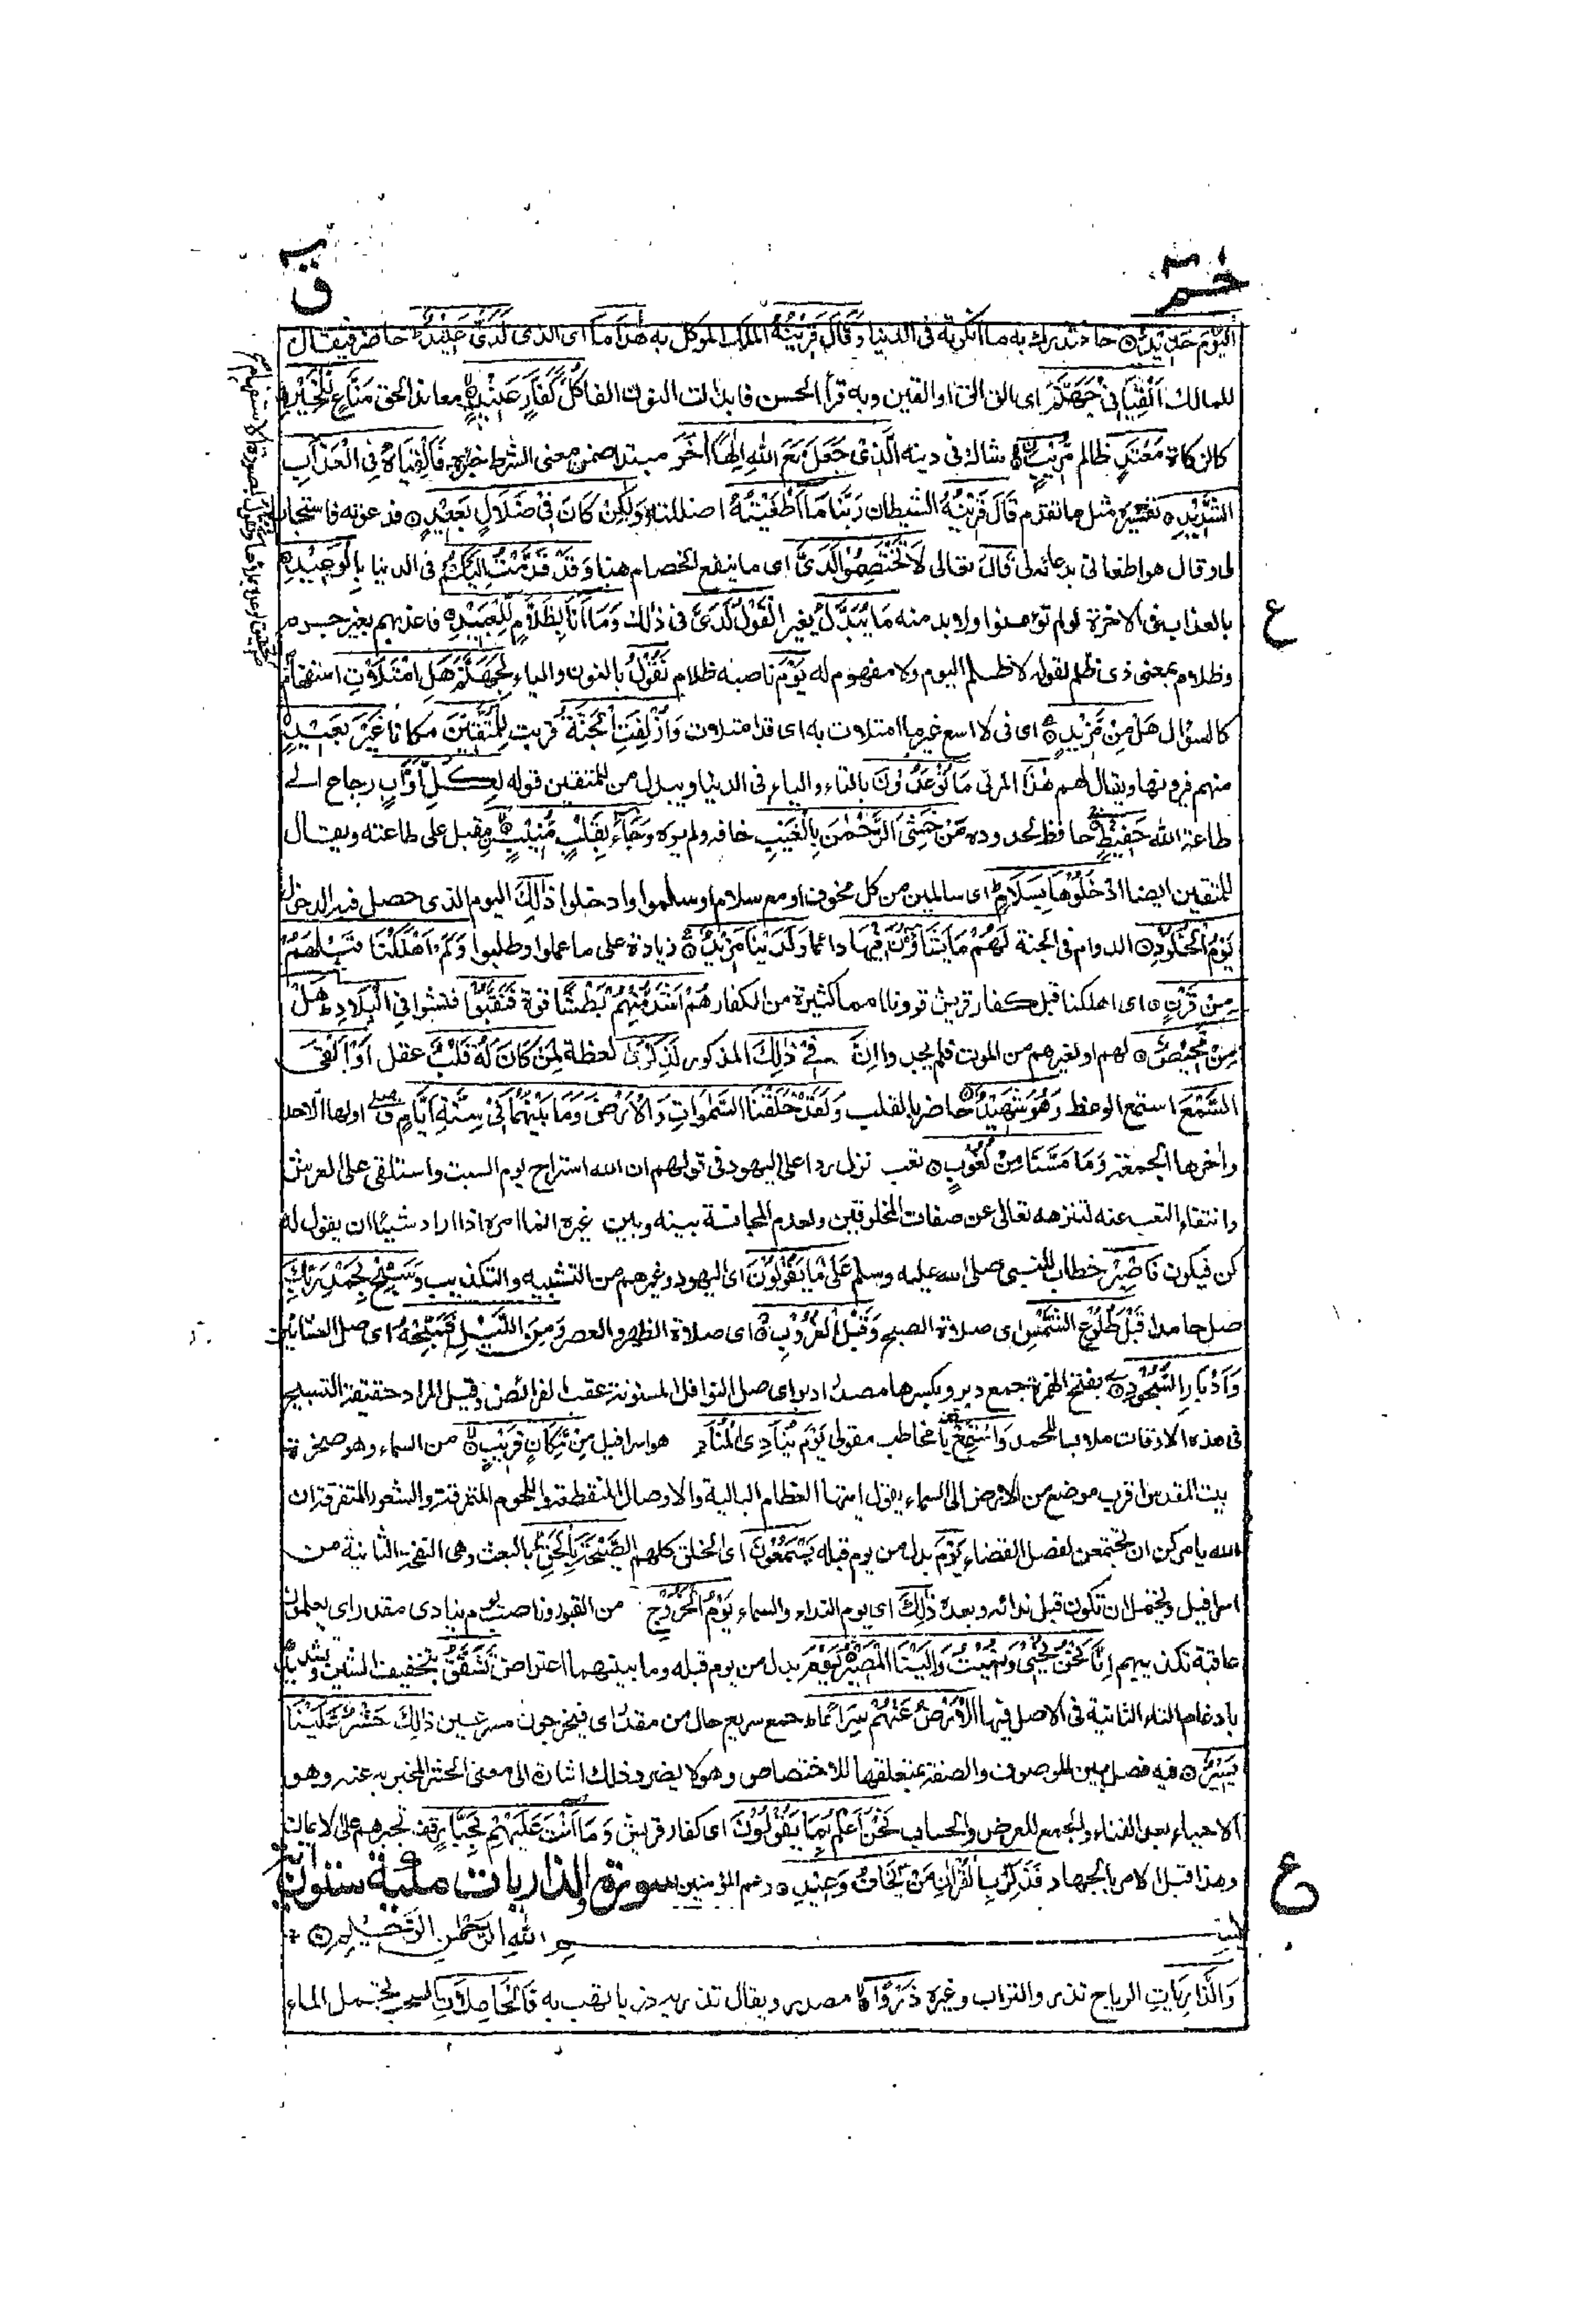 حٰمٓ
قٓ
الْيَوْمَ حَدِيْدٌ حاد تدرك به ما انكرته فى الدنيا وَقَالَ قَرِيْنُهُ الملك الموكل به هٰذَا مَا اى الذى لَدَىَّ عَتِيْدٌ حاضر فيقال
للمالك اَلْقِيَا فِىْ جَهَنَّمَ اى الق الق او القين وبه قرأ الحسن فابدلت النون الفا كُلَّ كَفَّارٍ عَنِيْدٍ معاند للحق مَنَّاعٍ لِّلْخَيْرِ
كالزكاة مُعْتَدٍ ظالم مُّرِيْبٍ شاك فى دينه الَّذِىْ جَعَلَ مَعَ اللّٰهِ اِلٰهًا اٰخَرَ مبتدا ضمن معنى الشرط خبره فَاَلْقِيَاهُ فِى الْعَذَابِ
الشَّدِيْدِ تفسيره مثل ما تقدم قَالَ قَرِيْنُهُ الشيطان رَبَّنَا مَا اَطْغَيْتُهُ اضللته وَلٰكِنْ كَانَ فِىْ ضَلَالٍ بَعِيْدٍ فدعوته فاستجاب
لى وقال هو اطغانى بدعائه لى قَالَ تعالى لَا تَخْتَصِمُوْا لَدَىَّ اى ما ينفع الخصام هنا وَقَدْ قَدَّمْتُ اِلَيْكُمْ فى الدنيا بِالْوَعِيْدِ
بالعذاب فى الاخرة لو لم تؤمنوا ولا بد منه مَا يُبَدَّلُ يغير الْقَوْلُ لَدَىَّ فى ذلك وَمَا اَنَا بِظَلَّامٍ لِّلْعَبِيْدِ فاعذبهم بغير جرم
وظلام بمعنى ذى ظلم لقوله لا ظلم اليوم ولا مفهوم له يَوْمَ ناصبه ظلام نَقُوْلُ بالنون والياء لِجَهَنَّمَ هَلِ امْتَلَأْتِ استفهام
كالسؤال هَلْ مِنْ مَّزِيْدٍ اى فى لا اسع غير ما امتلات به اى قد امتلات وَاُزْلِفَتِ الْجَنَّةُ قربت لِلْمُتَّقِيْنَ مكانا غَيْرَ بَعِيْدٍ
منهم فيرونها ويقال لهم هٰذَا المرئى مَا تُوْعَدُوْنَ بالتاء والياء فى الدنيا ويبدل من للمتقين قوله لِكُلِّ اَوَّابٍ رجاع الى
طاعة الله حَفِيْظٍ حافظ لحدوده مَنْ خَشِىَ الرَّحْمٰنَ بِالْغَيْبِ خافه ولم يره وَجَاءَ بِقَلْبٍ مُّنِيْبٍ مقبل على طاعته ويقال
للمتقين ايضا ادْخُلُوْهَا بِسَلَامٍ اى سالمين من كل مخوف او مع سلام او سلموا وادخلوا ذٰلِكَ اليوم الذى حصل فيه الدخول
يَوْمُ الْخُلُوْدِ الدوام فى الجنة لَهُمْ مَا يَشَاؤُنَ فِيْهَا دائما وَلَدَيْنَا مَزِيْدٌ زيادة على ما عملوا وطلبوا وَكَمْ اَهْلَكْنَا قَبْلَهُمْ
مِنْ قَرْنٍ اى اهلكنا قبل كفار قريش قرونا امما كثيرة من الكفار هُمْ اَشَدُّ مِنْهُمْ بَطْشًا قوة فَنَقَّبُوْا فتشوا فِى الْبِلَادِ هَلْ
مِنْ مَّحِيْصٍ لهم او لغيرهم من الموت فلم يجدوا اِنَّ فِىْ ذٰلِكَ المذكور لَذِكْرٰى لعظة لِمَنْ كَانَ لَهُ قَلْبٌ عقل اَوْ اَلْقَى
السَّمْعَ استمع الوعظ وَهُوَ شَهِيْدٌ حاضر بالقلب وَلَقَدْ خَلَقْنَا السَّمٰوَاتِ وَالْاَرْضَ وَمَا بَيْنَهُمَا فِىْ سِتَّةِ اَيَّامٍ اولها الاحد
واخرها الجمعة وَمَا مَسَّنَا مِنْ لُّغُوْبٍ تعب نزل ردا على اليهود فى قولهم ان الله استراح يوم السبت واستلقى على العرش
وانتفاء التعب عنه لتنزهه تعالى عن صفات المخلوقين ولعدم المجانسة بينه وبين غيره انما امره اذا اراد شيئا ان يقول له
كن فيكون فَاصْبِرْ خطاب للنبى صلى الله عليه وسلم عَلٰى مَا يَقُوْلُوْنَ اى اليهود وغيرهم من التشبيه والتكذيب وَسَبِّحْ بِحَمْدِ رَبِّكَ
صل حامدا قَبْلَ طُلُوْعِ الشَّمْسِ اى صلاة الصبح وَقَبْلَ الْغُرُوْبِ اى صلاة الظهر والعصر وَمِنَ اللَّيْلِ فَسَبِّحْهُ اى صل العشائين
وَاَدْبَارَ السُّجُوْدِ بفتح الهمزة جمع دبر وبكسرها مصدر ادبر اى صل النوافل المسنونة عقب الفرائض وقيل المراد حقيقة التسبيح
فى هذه الاوقات ملابسا للحمد وَاسْتَمِعْ يا مخاطب مقولى يَوْمَ يُنَادِ الْمُنَادِ هو اسرافيل مِنْ مَّكَانٍ قَرِيْبٍ من السماء وهو صخرة
بيت المقدس اقرب موضع من الارض الى السماء يقول ايتها العظام البالية والاوصال المتقطعة واللحوم المتمزقة والشعور المتفرقة ان
الله يامركن ان تجتمعن لفصل القضاء يَوْمَ بدل من يوم قبله يَسْمَعُوْنَ اى الخلق كلهم الصَّيْحَةَ بِالْحَقِّ بالبعث وهى النفخة الثانية من
اسرافيل ويحتمل ان تكون قبل ندائه وبعده ذٰلِكَ اى يوم النداء والسماع يَوْمُ الْخُرُوْجِ من القبور وناصب يوم ينادى مقدر اى يعلمون
عاقبة تكذيبهم اِنَّا نَحْنُ نُحْيِىْ وَنُمِيْتُ وَاِلَيْنَا الْمَصِيْرُ يَوْمَ بدل من يوم قبله وما بينهما اعتراض تَشَقَّقُ بتخفيف الشين وتشديدها
بادغام التاء الثانية فى الاصل فيها الْاَرْضُ عَنْهُمْ سِرَاعًا جمع سريع حال من مقدر اى فيخرجون مسرعين ذٰلِكَ حَشْرٌ عَلَيْنَا
يَسِيْرٌ فيه فصل بين الموصوف والصفة بمتعلقها للاختصاص وهو لا يضر وذلك اشارة الى معنى الحشر المخبر به عنه وهو
الاحياء بعد الفناء والجمع للعرض والحساب نَحْنُ اَعْلَمُ بِمَا يَقُوْلُوْنَ اى كفار قريش وَمَا اَنْتَ عَلَيْهِمْ بِجَبَّارٍ تجبرهم على الايمان
وهذا قبل الامر بالجهاد فَذَكِّرْ بِالْقُرْاٰنِ مَنْ يَّخَافُ وَعِيْدِ وهم المؤمنين سورة والذاريات مكية ستون اٰية
بسم اللّٰهِ الرَّحْمٰنِ الرَّحِيْمِ
وَالذَّارِيَاتِ الرياح تذرو التراب وغيره ذَرْوًا مصدر ويقال تذريه ذريا تهب به فَالْحَامِلَاتِ السحب تحمل الماء
ع
ع